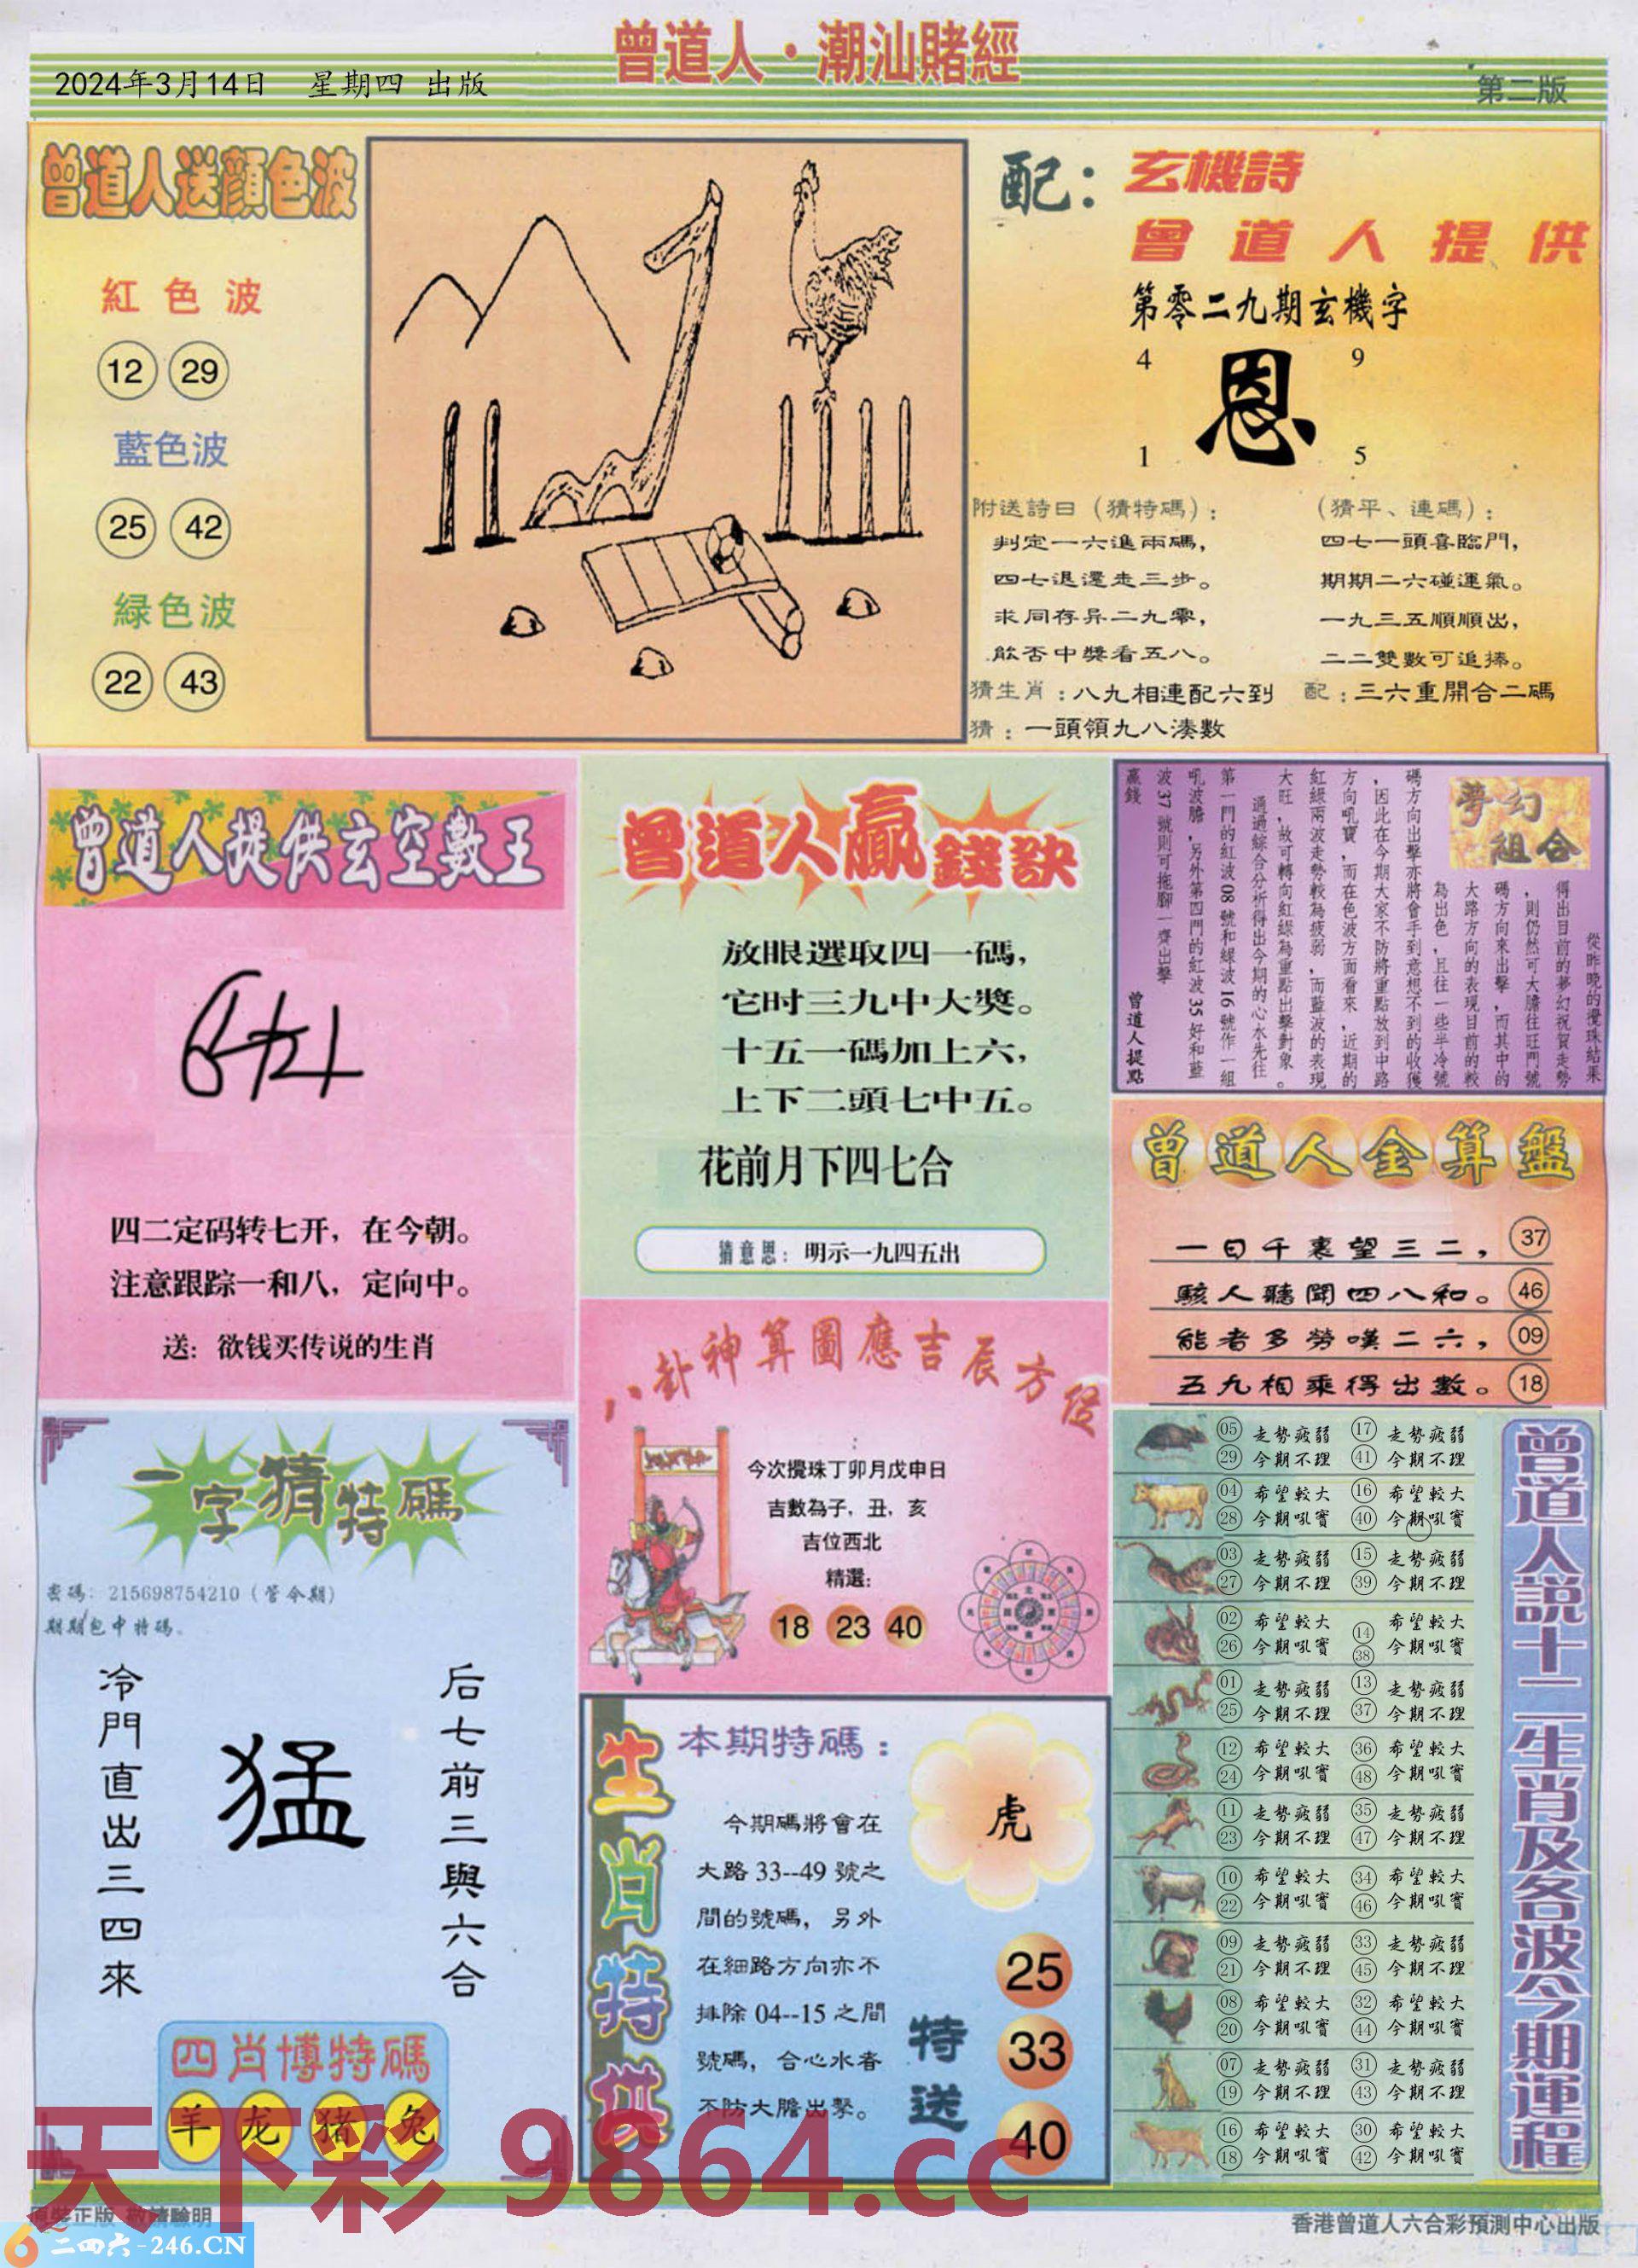 曾道人·潮汕賭經
2024年3月14日 星期四 出版
第二版
曾道人送顏色波
紅色波
12 29
藍色波
25 42
緑色波
22 43
配：玄機詩
曾道人提供
第零二九期玄機字
4 9
恩
1 5
附送詩日（猜特碼）：
判定一六進兩碼，
四七退還走三步。
求同存异二九零，
能否中獎看五八。
（猜平、連碼）：
四七一頭喜臨門，
期期二六碰運氣。
一九三五順順出，
二二雙數可追捧。
猜生肖：八九相連配六到
配：三六重開合二碼
猜：一頭領九八湊數
曾道人提供玄空數王
四二定码转七开，在今朝。
注意跟踪一和八，定向中。
送：欲钱买传说的生肖
曾道人贏錢訣
放眼選取四一碼，
它时三九中大獎。
十五一碼加上六，
上下二頭七中五。
花前月下四七合
猜意思：明示一九四五出
夢幻組合
從昨晚的攪珠結果
得出目前的夢幻祝賀走勢
，則仍然可大膽往旺門號
碼方向來出擊，而其中的
大路方向的表現目前的較
為出色，且往一些半冷號
碼方向出擊亦將會手到意想不到的收獲
，因此在今期大家不防將重點放到中路
方向吼寶，而在色波方面看來，近期的
紅綠兩波走勢較為疲弱，而藍波的表現
大旺，故可轉向紅綠為重點出擊對象。
通過綜合分析得出今期的心水先往
第一門的紅波08號和綠波16號作一組
吼波膽，另外第四門的紅波35好和藍
波37號則可拖腳一齊出擊
贏錢
曾道人提點
曾道人金算盤
一日千裏望三二， 37
駭人聽聞四八和。 46
能者多勞嘆二六， 09
五九相乘得出數。 18
八卦神算圖應吉辰方位
今次攪珠丁卯月戊申日
吉數為子，丑，亥
吉位西北
精選：
18 23 40
一字猜特碼
密碼：215698754210（管今期）
期期包中特碼。
后七前三與六合
猛
冷門直出三四來
四肖博特碼
羊 龙 猪 兔
生肖特供
本期特碼：
虎
今期碼將會在
大路33--49號之
間的號碼，另外
在細路方向亦不
排除04--15之間
號碼，合心水者
不防大膽出擊。
特送
25
33
40
曾道人說十二生肖及各波今期運程
05 走勢疲弱 17 走勢疲弱
29 今期不理 41 今期不理
04 希望較大 16 希望較大
28 今期吼實 40 今期吼實
03 走勢疲弱 15 走勢疲弱
27 今期不理 39 今期不理
02 希望較大 14 希望較大
26 今期吼實 38 今期吼實
01 走勢疲弱 13 走勢疲弱
25 今期不理 37 今期不理
12 希望較大 36 希望較大
24 今期吼實 48 今期吼實
11 走勢疲弱 35 走勢疲弱
23 今期不理 47 今期不理
10 希望較大 34 希望較大
22 今期吼實 46 今期吼實
09 走勢疲弱 33 走勢疲弱
21 今期不理 45 今期不理
08 希望較大 32 希望較大
20 今期吼實 44 今期吼實
07 走勢疲弱 31 走勢疲弱
19 今期不理 43 今期不理
16 希望較大 30 希望較大
18 今期吼實 42 今期吼實
天下彩 9864.cc
原裝正版 敬請驗明
二四六-246.CN
香港曾道人六合彩預測中心出版